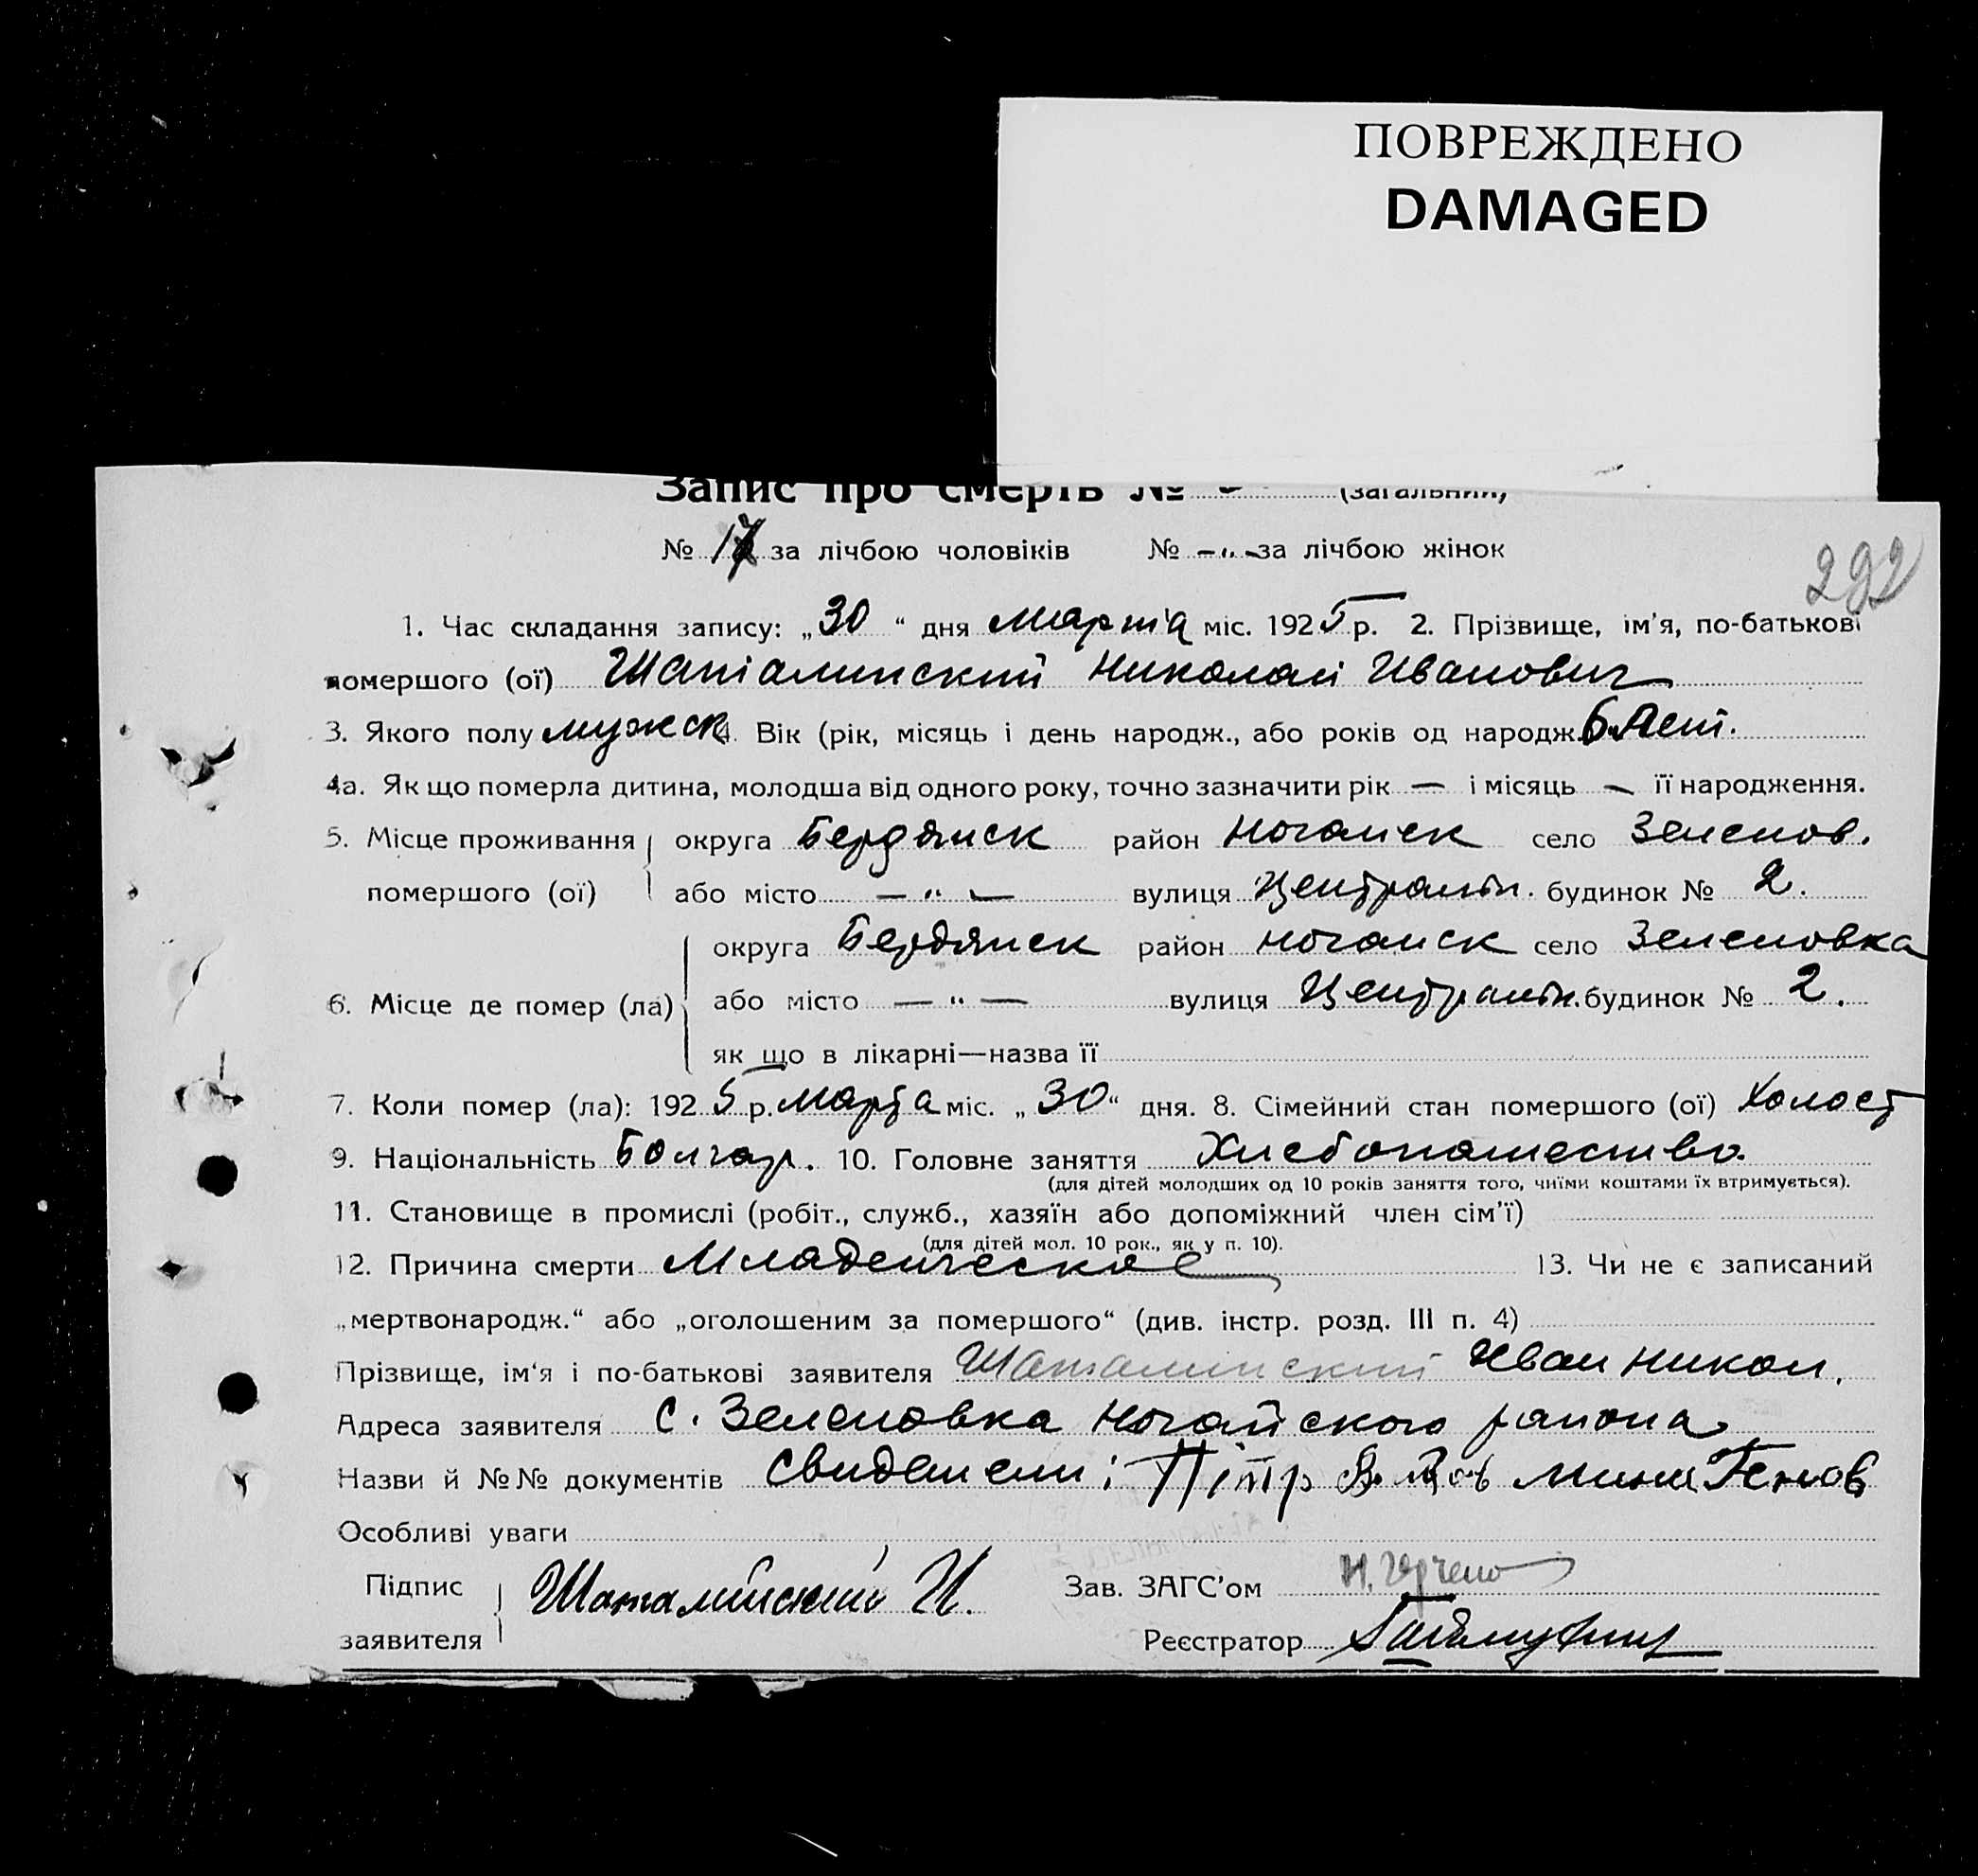 ПОВРЕЖДЕНО
DAMAGED
Запис про смерть № (загальний)
№ 17 за лічбою чоловіків № -"- за лічбою жінок
292
1. Час складання запису: „30“ дня марта міс. 1925 р. 2. Прізвище, ім'я, по-батькові
помершого (ої) Шаталинский Николай Иванович
3. Якого полу мужск 4. Вік (рік, місяць і день народж., або років од народж. 6 лет.
4а. Як що померла дитина, молодша від одного року, точно зазначити рік — і місяць — її народження.
5. Місце проживання округа Бердянск район Ногайск село Зеленов.
помершого (ої) або місто — " — вулиця Централн. будинок № 2.
округа Бердянск район Ногайск село Зеленовка
6. Місце де помер (ла) або місто — " — вулиця Централн. будинок № 2.
як що в лікарні—назва її
7. Коли помер (ла): 1925 р. марта міс. „30“ дня. 8. Сімейний стан помершого (ої) Холост
9. Національність Болгар. 10. Головне заняття Хлебопашество.
(для дітей молодших од 10 років заняття того, чиїми коштами їх втримується).
11. Становище в промислі (робіт., служб., хазяїн або допоміжний член сім'ї)
(для дітей мол. 10 рок., як у п. 10).
12. Причина смерти Младенческое 13. Чи не є записаний
„мертвонародж.“ або „оголошеним за помершого“ (див. інстр. розд. III п. 4)
Прізвище, ім'я і по-батькові заявителя Шаталинский Иван Никол.
Адреса заявителя с. Зеленовка Ногайского района
Назви й №№ документів Свидетели: Пітр Мина Генов
Особливі уваги
Підпис заявителя Шаталинский И. Зав. ЗАГС'ом
Реєстратор